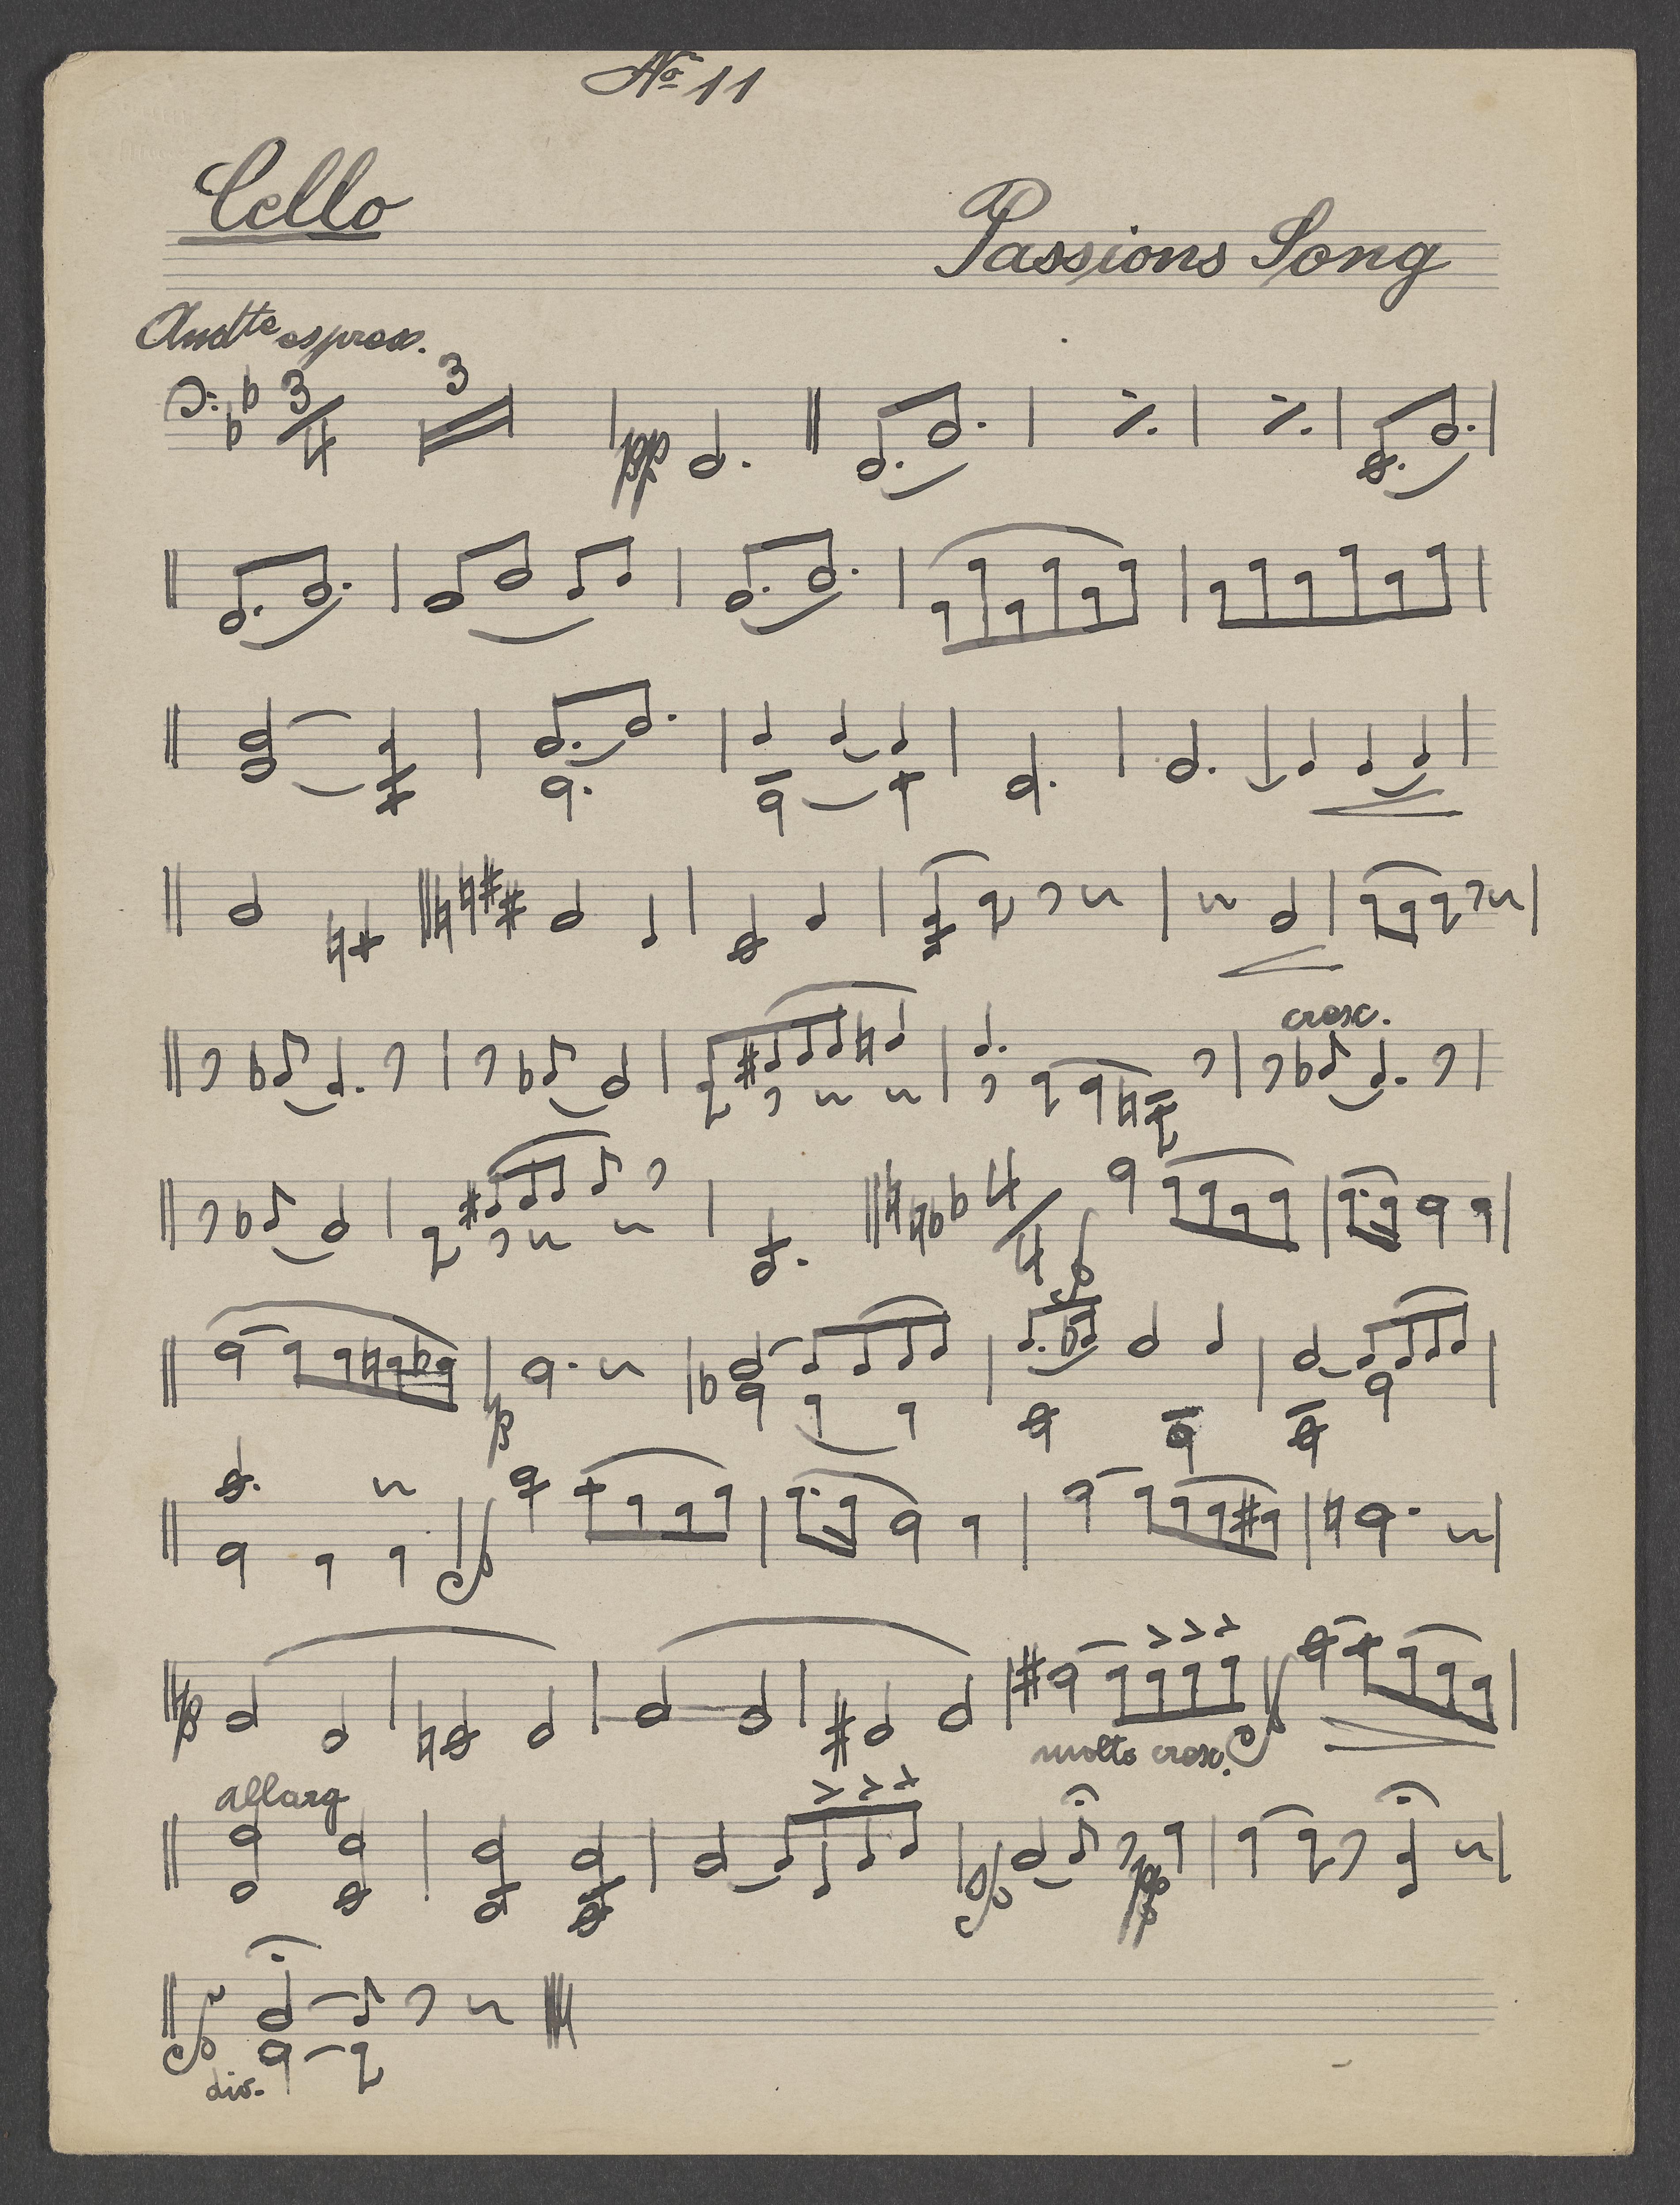 No 11
Cello
Passions Song
Andte espress.
3
4
3
pp
cresc.
4
4
f
p
f
p
molto cresc. f
allarg
f
pp
f
div.